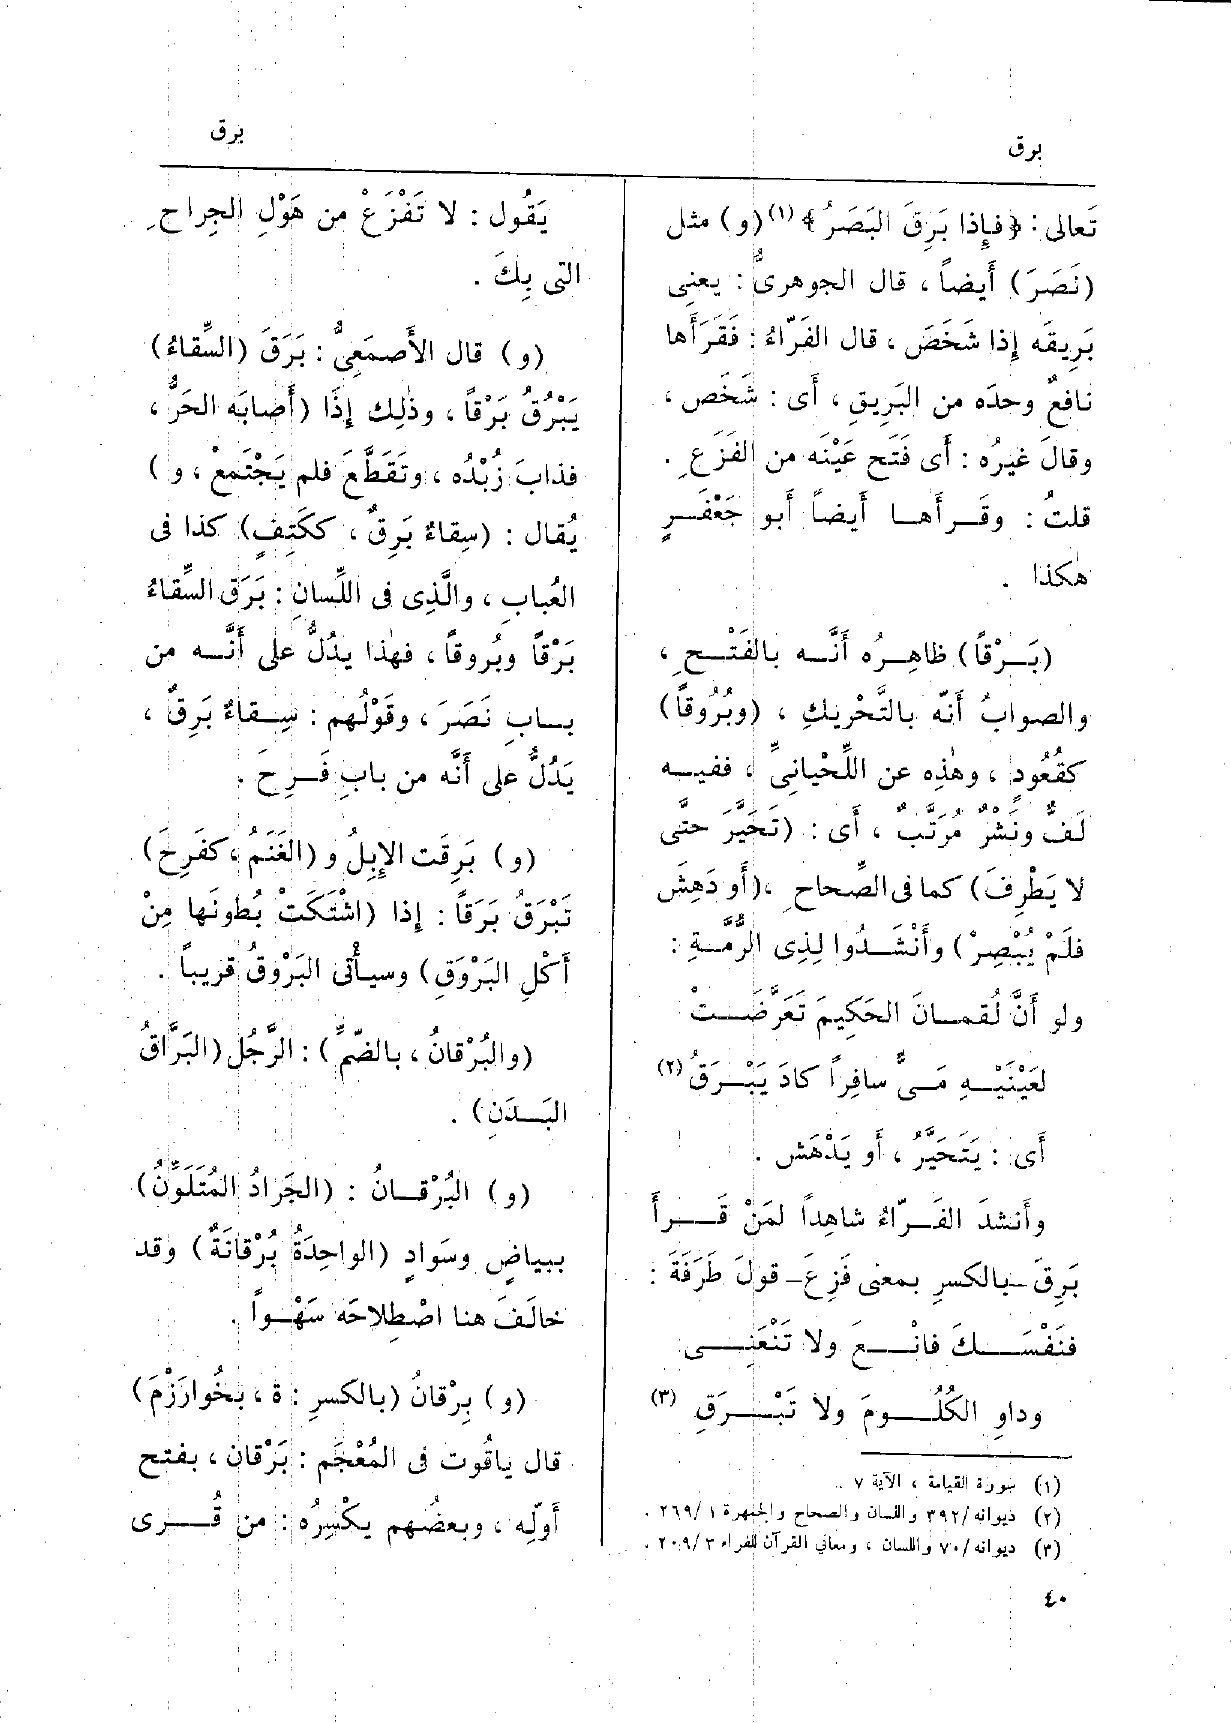 برق
برق
تَعالى : ﴿فإِذا بَرِقَ البَصَرُ﴾ (١) (و) مثل
(نَصَرَ) أَيضاً ، قال الجوهرىُّ : يعنِى
بَرِيقَه إِذا شَخَصَ ، قال الفَرّاءُ : فَقَرَأَها
نافعٌ وحدَه من البَرِيقِ ، أَى : شَخَص ،
وقالَ غيرُه : أَى فَتَح عَيْنَه من الفَزَعِ .
قلتُ : وقَـرأَهـا أَيضاً أَبو جَعْفَـرٍ
هٰكذا .
(بَـرْقاً) ظاهِـرُه أَنَّـه بالفَتْـحِ ،
والصوابُ أَنّه بالتَّحْرِيكِ ، (وبُرُوقاً)
كقُعُودٍ ، وهٰذِه عن اللِّحْيانِىِّ ، ففيـه
لَفٌّ ونَشْرٌ مُرَتَّبٌ ، أَى : (تَحَيَّرَ حتّى
لا يَطْرِفَ) كما فى الصِّحاحِ ، (أَو دَهِشَ
فلَمْ يُبْصِرْ) وأَنْشَـدُوا لِذِى الرُّمَّـةِ :
ولو أَنَّ لُقمـانَ الحَكِيمَ تَعَرَّضَـتْ
لعَيْنَيْـهِ مَـىٌّ سافِراً كادَ يَبْـرَقُ (٢)
أَى : يَتَحَيَّرُ ، أَو يَدْهَش .
وأَنشدَ الفَـرّاءُ شاهِداً لمَنْ قَـرأَ
بَرِقَ - بالكسرِ بمعنى فَزِعَ - قولَ طَرَفَةَ :
فنَفْسَـكَ فانْـعَ ولا تَنْعَنِـى
وداوِ الكُلُـومَ ولا تَبْـرَقِ (٣)
(١) سورة القيامة ، الآية ٧ .
(٢) ديوانه/٣٩٢ واللسان والصحاح والجمهرة ٢٦٩/١ .
(٣) ديوانه/٧٠ واللسان ، ومعاني القرآن للفراء ٢٠٩/٣ .
٤٠
يَقُول : لا تَفْزَعْ من هَوْلِ الجِراحِ
التى بِكَ .
(و) قال الأَصمَعِىُّ : بَرَقَ (السِّقاءُ)
يَبْرُقُ بَرْقاً ، وذٰلِك إِذَا (أَصابَه الحَرُّ ،
فذابَ زُبْدُه ، وتَقَطَّعَ فلم يَجْتَمعْ ، و )
يُقال : (سِقاءٌ بَرِقٌ ، ككَتِفٍ) كذا فى
العُبابِ ، والَّذِى فى اللِّسانِ : بَرَق السِّقاءُ
بَرْقاً وبُروقاً ، فهٰذا يدُلُّ على أَنَّـه من
بـابِ نَصَرَ ، وقَوْلُهم : سِـقاءٌ بَرِقٌ ،
يَدُلُّ على أَنَّه من بابِ فَـرِحَ .
(و) بَرِقَت الإِبِلُ و (الغَنَمُ ، كفَرِحَ)
تَبْرَقُ بَرَقاً : إِذا (اشْتَكَتْ بُطونَها مِنْ
أَكْلِ البَرْوَقِ) وسيـأْتى البَرْوقُ قريباً .
(والبُرْقانُ ، بالضمِّ) : الرَّجُل (البَرَّاقُ
البَـدَنِ) .
(و) البُرْقـانُ : (الجَرادُ المُتَلَوِّنُ)
ببياضٍ وسَوادٍ (الواحِدَةُ بُرْقانَةٌ) وقد
خالَفَ هنا اصْطِلاحَه سَهْـواً .
(و) بِرْقانُ (بالكسرِ : ة ، بخُوارَزْمَ)
قال ياقُوت فى المُعْجَم : بَرْقان ، بفتح
أَوّلِه ، وبعضُهم يكْسِرُه : من قُـرى